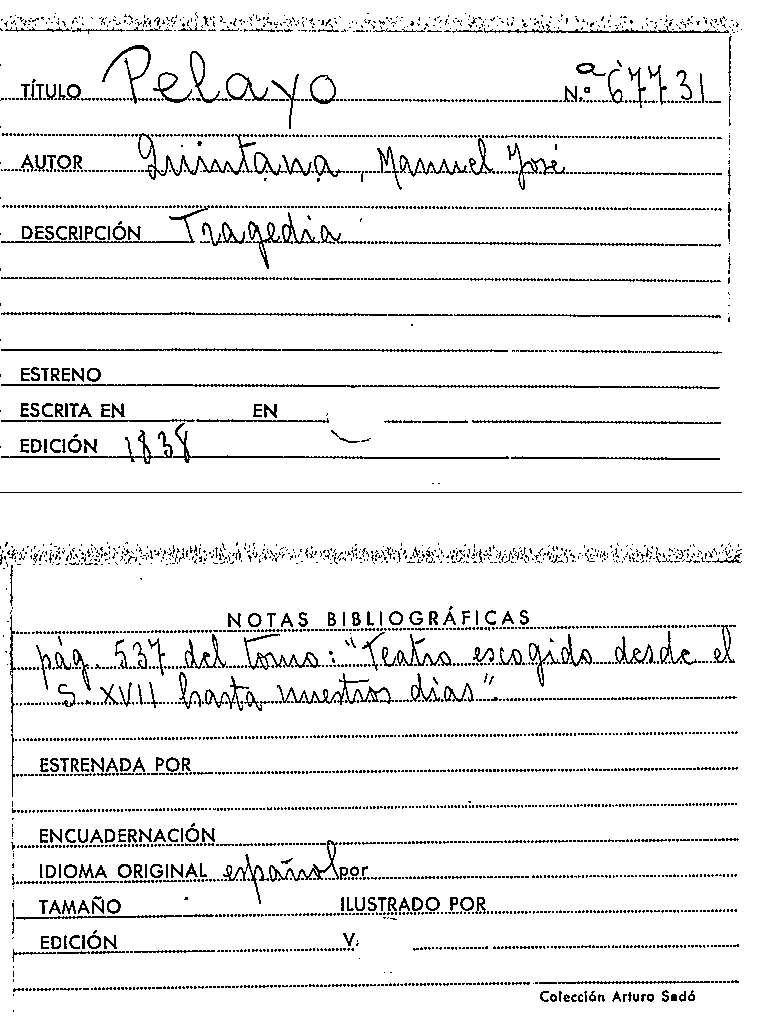 TÍTULO Pelayo N.º a 67731
AUTOR Quintana, Manuel José
DESCRIPCIÓN Tragedia
ESTRENO
ESCRITA EN EN
EDICIÓN 1838
NOTAS BIBLIOGRÁFICAS
pág. 537 del tomo: "Teatro escogido desde el
S. XVII hasta nuestros días".
ESTRENADA POR
ENCUADERNACIÓN
IDIOMA ORIGINAL español por
TAMAÑO ILUSTRADO POR
EDICIÓN V.
Colección Arturo Sedó